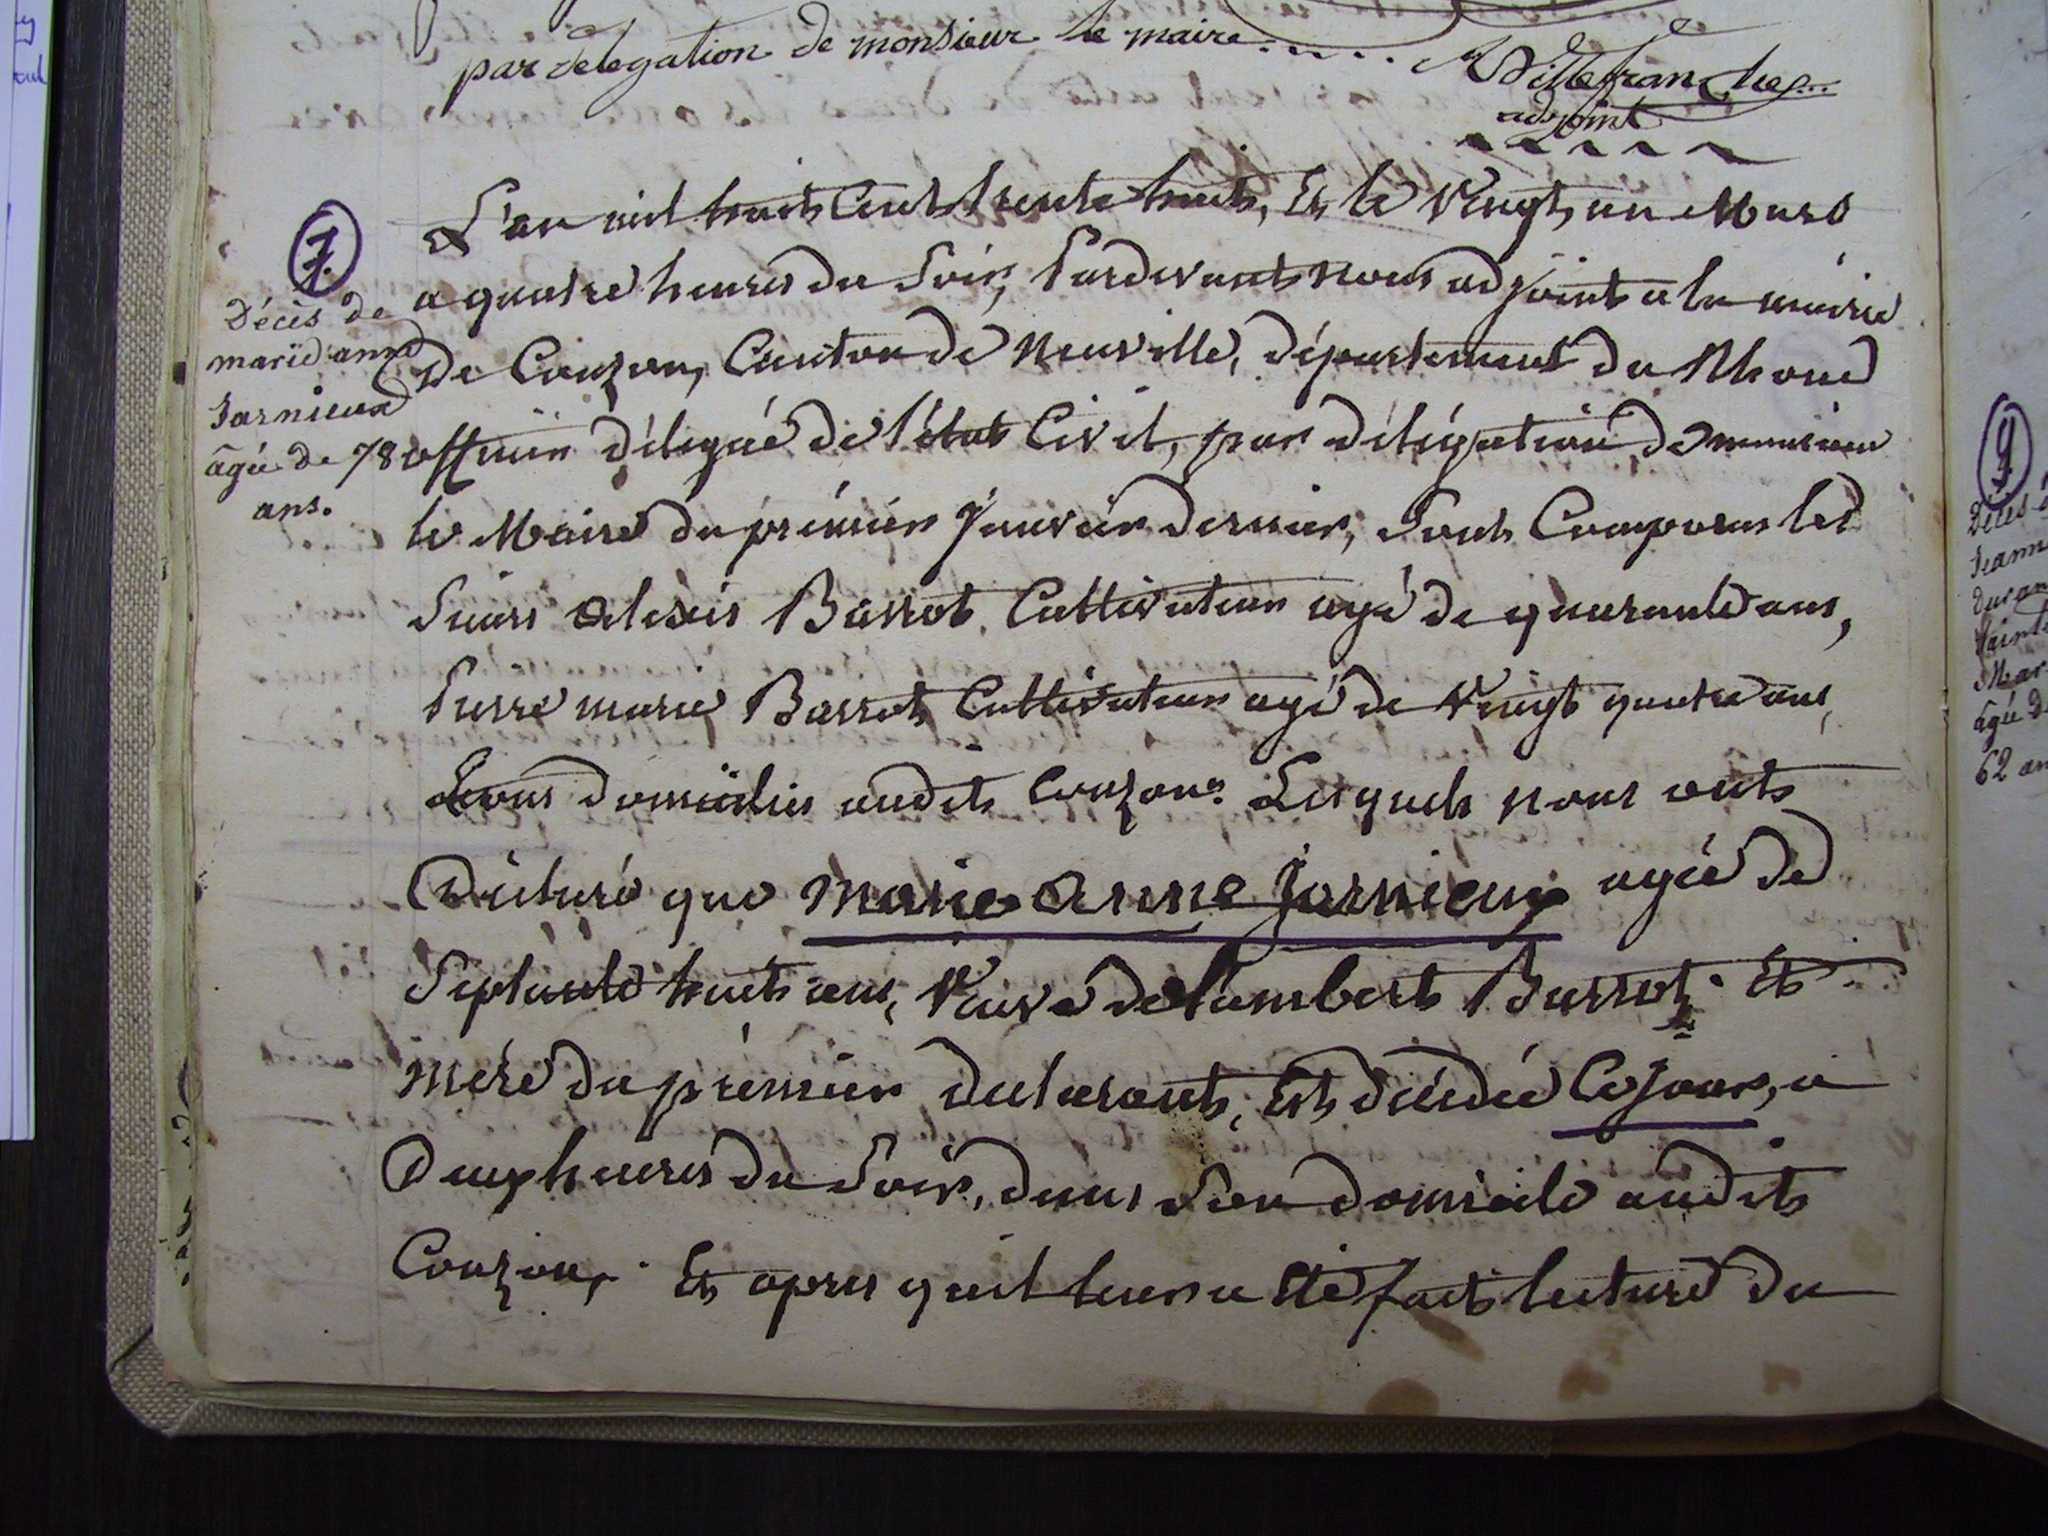 par délégation de monsieur le maire....
Villefranche
adjoint
7.
Décès de
marie anne
Jarnieux
âgée de 78
ans.
L'an mil huit Cent trente huit, Et le Vingt un Mars
a quatre heures du Soir, Pardevant nous adjoint a la mairie
de Couzon, Canton de Neuville, département du Rhone
officier délégué de l'état Civil, par délégation de monsieur
le Maire du prémier Janvier dernier, Sont Comparus les
Sieurs Alexis Barrot Cultivateur agé de quarante ans,
Pierre marie Barrot Cultivateur agé de Vingt quatre ans,
Tous domiciliés audit Couzon. Lesquels nous ont
Déclaré que Marie Anne Jarnieux agée de
Septante huit ans, Veuve de Lambert Barrot. Et
mère du prémier déclarant, Est décédée Ce jour, a
Deux heures du Soir, dans Son domicile audit
Couzon. Et apres quil leur a Eté fait lecture du
9
Décès d
Jeann
Duran
Saint
Mar
âgée d
62 an